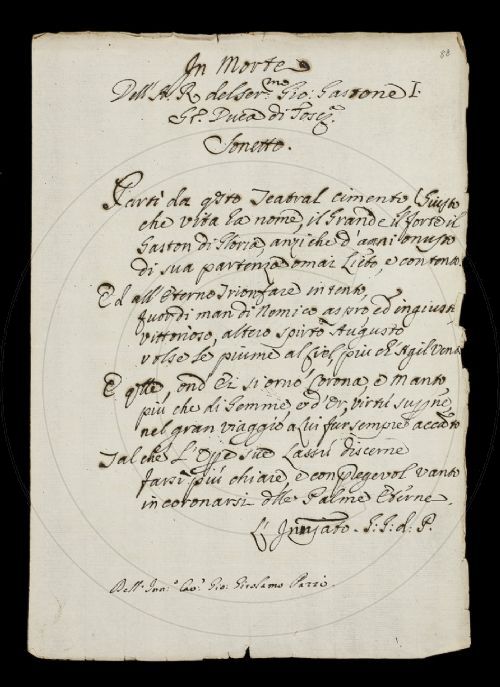 88
In Morte
Dell'A. R. del Ser.mo Gio: Gastone I.
G. Duca di Tosc.a
Sonetto.
Partì da qsto Teatral cimento (Giusto
che vita ha nome, il Grande il forte il
Gaston di Gloria, anzi che d'anni onusto
di sua partenza omai Lieto, e contento
Ed all'Eterno Trionfare intento,
fuor di man di Nemico aspro ed ingiusto
vittorioso, altero spirto Augusto
volse le piume al Ciel più ch'Agil Vento
E qlle, ond'Ei si ornò Corona e Manto
più che di Gemme, ed'Or, virtù
nel gran viaggio a Lui fur sempre accanto
Tal che L' sue Lassù discerne
farsi più chiare, e con vanto
incoronarsi dlle Palme Eterne
L' G: G: d: P.
Dell' Inn.o Cav.r Gio: Girolamo Pazzi.